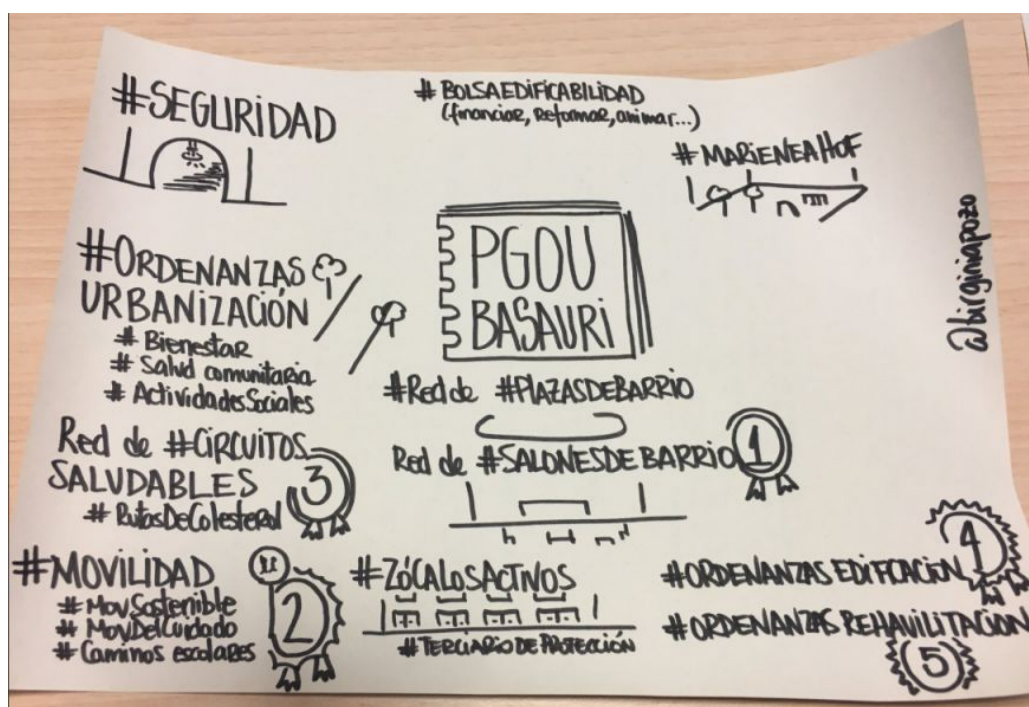 #SEGURIDAD
#BOLSAEDIFICABILIDAD
(financiar, reformar, animar...)
#MARIENEAHOF
@birginiapozo
#ORDENANZAS
URBANIZACIÓN
#Bienestar
#Salud comunitaria
#ActividadesSociales
PGOU
BASAURI
#Red de #PLAZASDEBARRIO
Red de #SALONESDEBARRIO 1
Red de #CIRCUITOS
SALUDABLES 3
#RutasDeColesterol
#MOVILIDAD
#MovSostenible
#MovDelCuidado
#Caminos escolares
2
#ZÓCALOSACTIVOS
#TERCIARIO DE PROTECCIÓN
#ORDENANZAS EDIFICACION 4
#ORDENANZAS REHAVILITACION
5